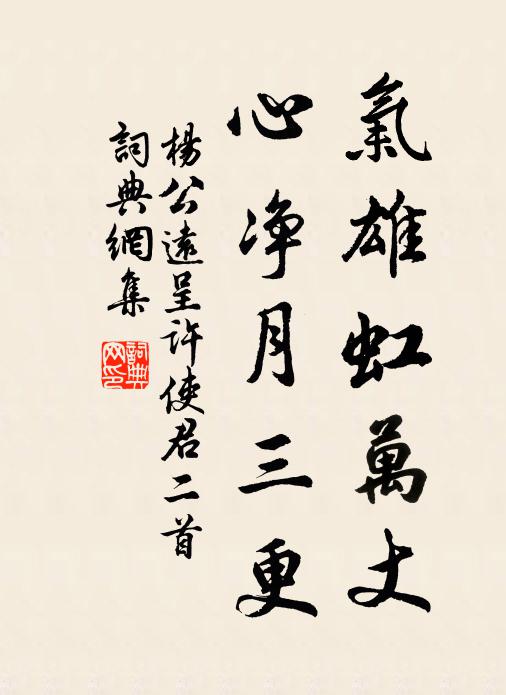 氣雄虹萬丈
心净月三更
楊公遠呈許使君二首
詞典網集
詞典網印